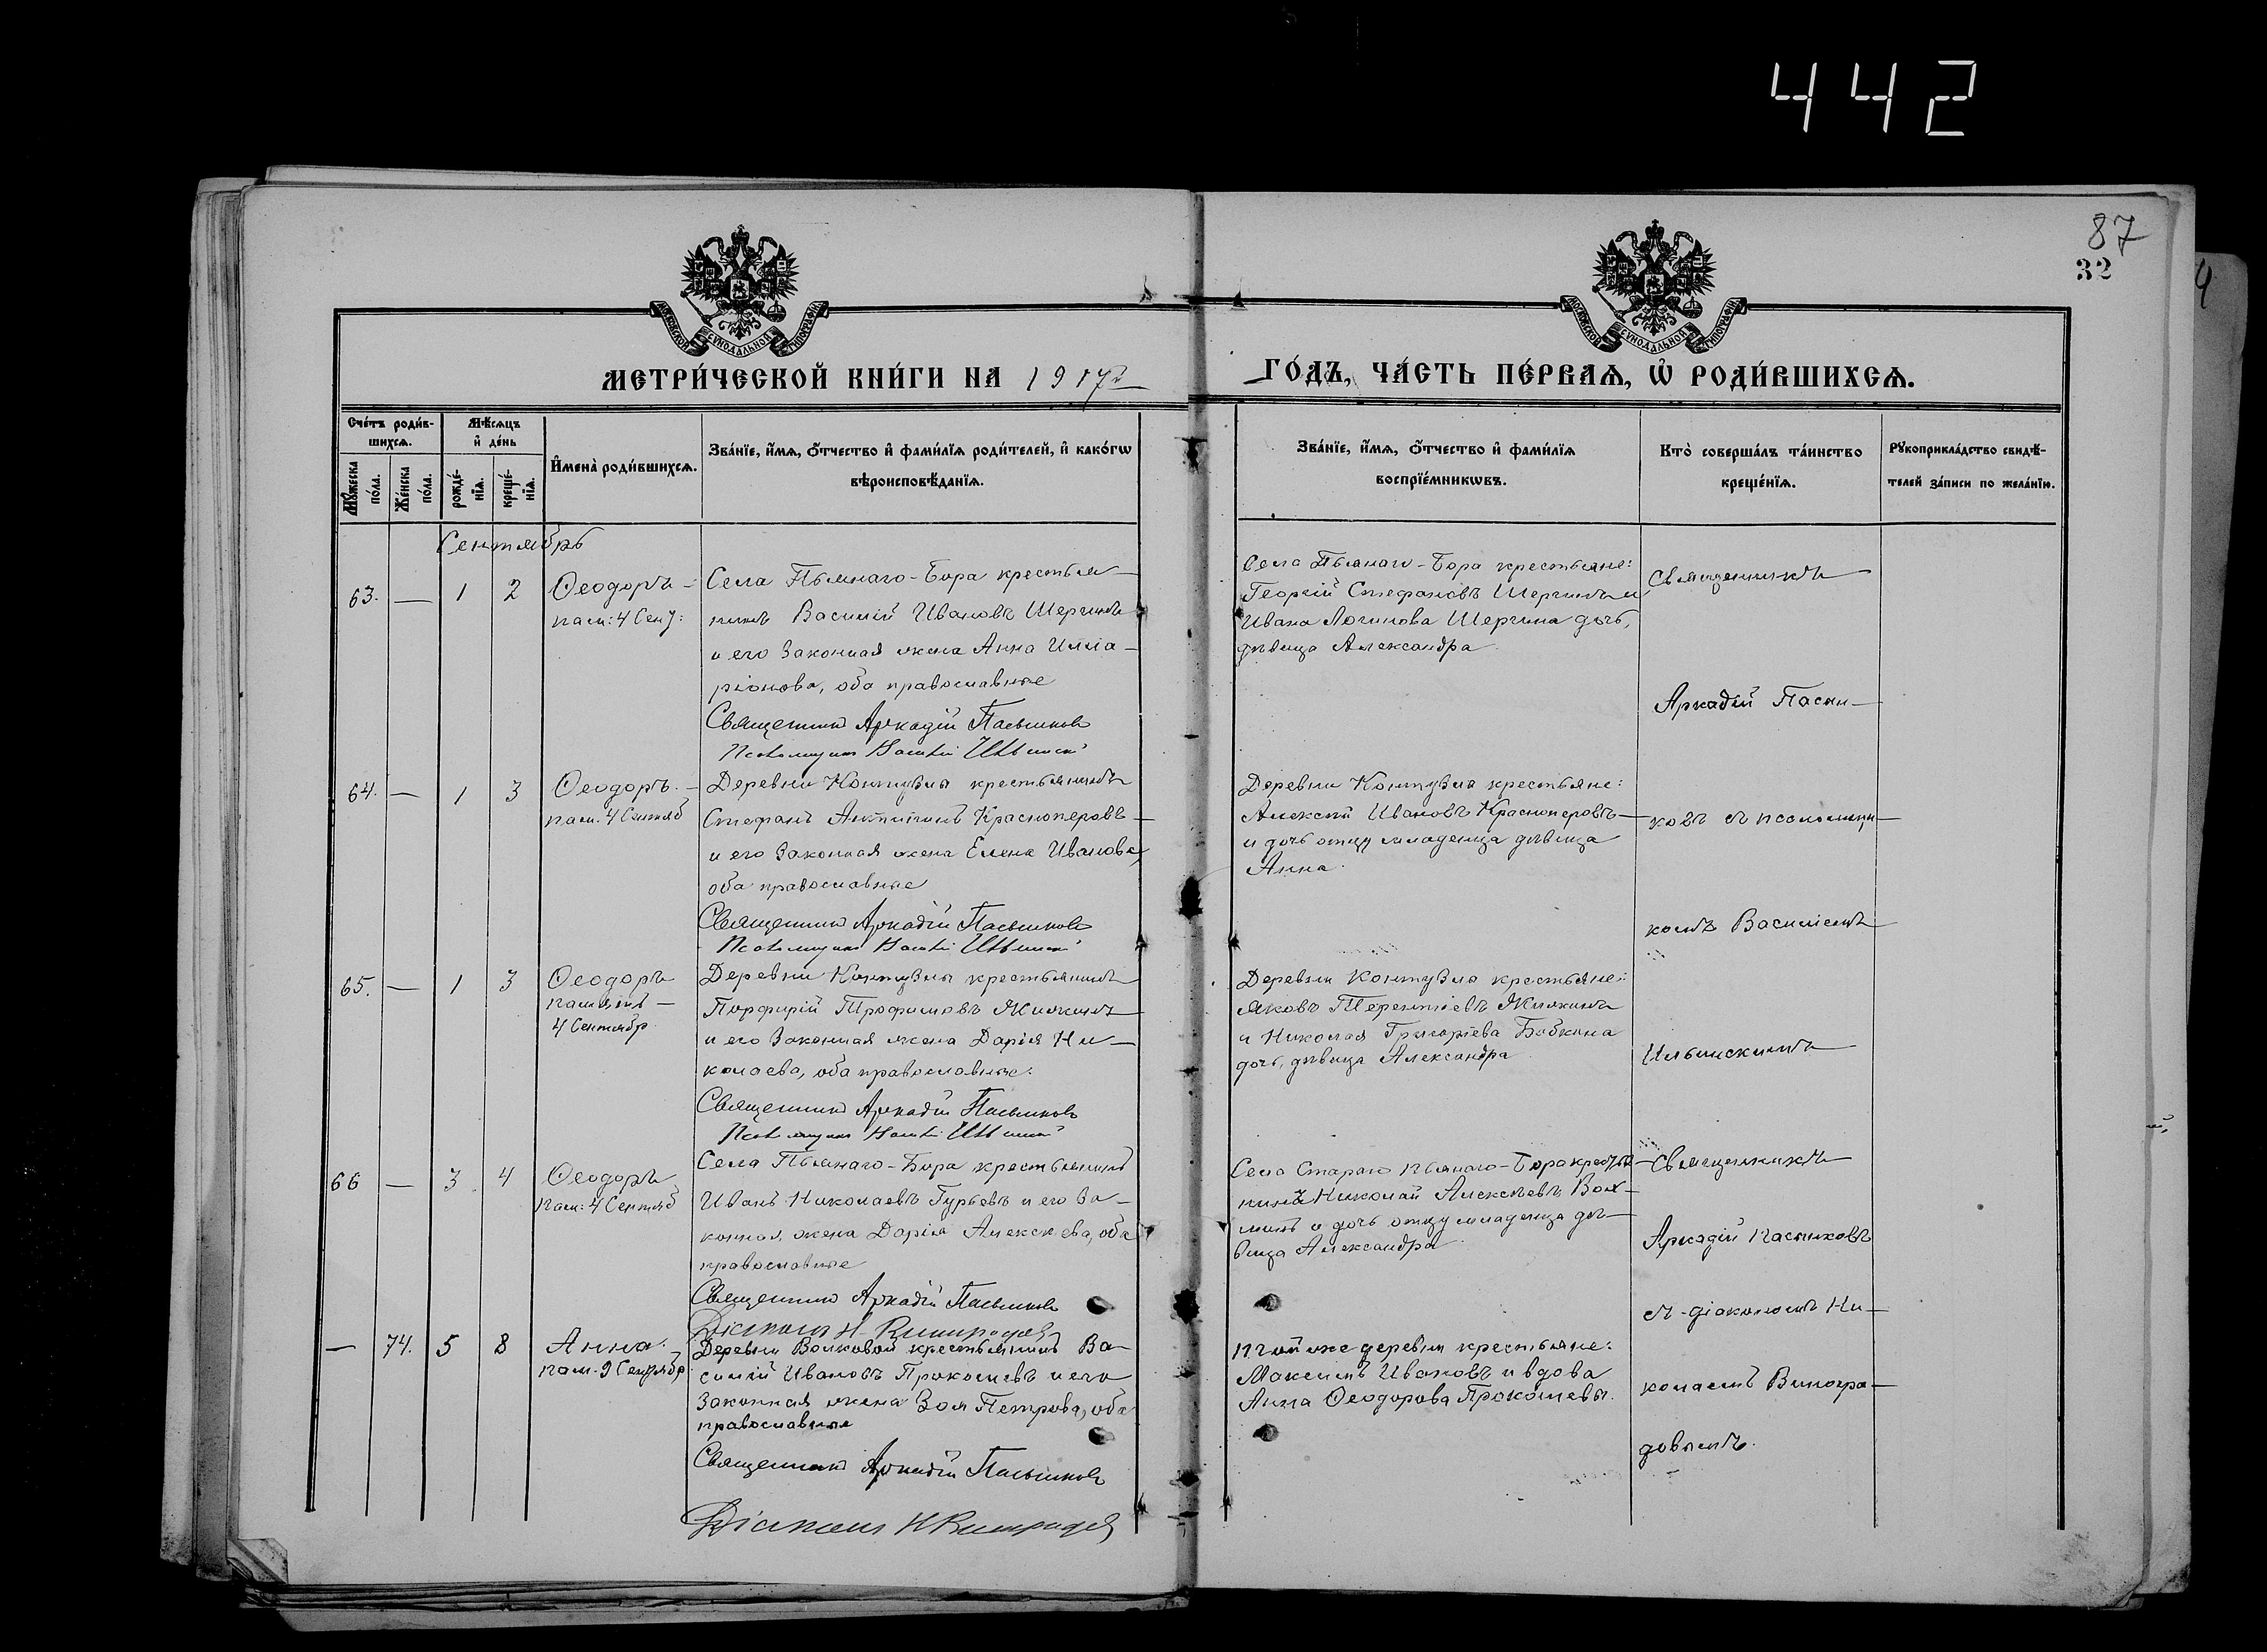 442
87
32
МОСКОВСКОЙ СѴНОДАЛЬНОЙ ТИПОГРАФІИ
МОСКОВСКОЙ СѴНОДАЛЬНОЙ ТИПОГРАФІИ
МЕТРИ́ЧЕСКОЙ КНИ́ГИ НА 1917 г.
ГО́ДЪ, ЧА́СТЬ ПЕ́РВАѦ, Ѡ҆ РОДИ́ВШИХСѦ.
Сче́тъ роди́в-
шихсѧ.
Мꙋ́жеска по́ла.
Же́нска по́ла.
Мѣ́сѧцъ
и҆ де́нь
рожде́-
нїѧ.
креще́-
нїѧ.
И҆мена̀ роди́вшихсѧ.
Зва́нїе, и҆́мѧ, ѻ҆́тчество и҆ фами́лїѧ роди́телей, и҆ како́гѡ
вѣроисповѣ́данїѧ.
Зва́нїе, и҆́мѧ, ѻ҆́тчество и҆ фами́лїѧ
воспрїе́мникѡвъ.
Кто̀ соверша́лъ та́инство
креще́нїѧ.
Рꙋкоприкла́дство свидѣ́-
телей за́писи по жела́нїю.
Сентябрь
63. — 1 2
Ѳеодоръ
пам: 4 Сен:
Села Пьянаго-Бора крестья-
нинъ Василій Ивановъ Шергинъ
и его законная жена Анна Илла-
ріонова, оба православные
Священникъ Аркадій Пасынковъ
Псаломщикъ Василій Ильинскій
Села Пьянаго-Бора крестьяне:
Георгій Стефановъ Шергинъ и
Ивана Логинова Шергина дочь,
дѣвица Александра
Священникъ
Аркадій Пасын-
64. — 1 3
Ѳеодоръ.
пам. 4 Сентяб
Деревни Контузла крестьянинъ
Стефанъ Красноперовъ
и его законная жена Елена Иванова,
оба православные
Священникъ Аркадій Пасынковъ
Псаломщикъ Василій Ильинскій
Деревни Контузла крестьяне:
Алексѣй Ивановъ Красноперовъ
и дочь отцу младенца дѣвица
Анна
ковъ съ псаломщи-
комъ Василіемъ
65. — 1 3
Ѳеодоръ
память
4 Сентябр
Деревни Контузла крестьянинъ
Порфирій Трофимовъ Жижинъ
и его законная жена Дарія Ни-
колаева, оба православные.
Священникъ Аркадій Пасынковъ
Псаломщикъ Василій Ильинскій
Деревни Контузла крестьяне:
Яковъ Терентіевъ Жижинъ
и Николая Григоріева Бабкина
дочь, дѣвица Александра
Ильинскимъ
66 — 3 4
Ѳеодоръ
пам: 4 Сентяб
Села Пьянаго-Бора крестьянинъ
Иванъ Николаевъ Гурьевъ и его за-
конная жена Дарія Алексѣева, оба
православные
Священникъ Аркадій Пасынковъ
Діаконъ Н. Виноградовъ
Села Стараго Пьянаго-Бора крестья-
нинъ Николай Алексѣевъ
и дочь отцу младенца дѣ-
вица Александра
Священникъ
Аркадій Пасынковъ
съ діакономъ Ни-
— 74. 5 8
Анна
пам. 9 Сентябр
Деревни Волковой крестьянинъ Ва-
силій Ивановъ Прокошевъ и его
законная жена Зоя Петрова, оба
православные
Священникъ Аркадій Пасынковъ
Діаконъ Н Виноградовъ
Той же деревни крестьяне:
Максимъ Ивановъ и вдова
Анна Ѳеодорова Прокошевы.
колаемъ Виногра-
довымъ.